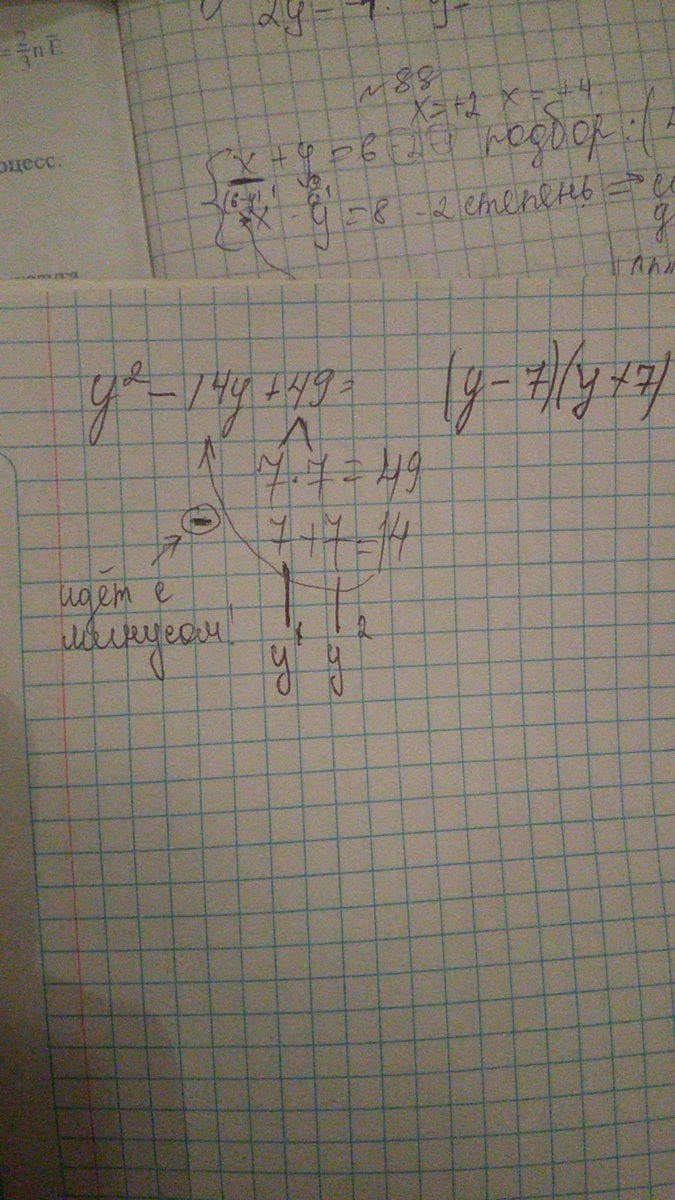 2y = -4. y =
= 2/3 n E
оцесс.
~ 88
x = +2 x = +4.
{ x + y = 6 - 2 y подбор: (
(6-y)
x · y = 8 - 2 степень ⇒
y² - 14y + 49 = (y - 7)(y + 7)
7 · 7 = 49
7 + 7 = 14
-
идёт с
минусом!
y¹ y²